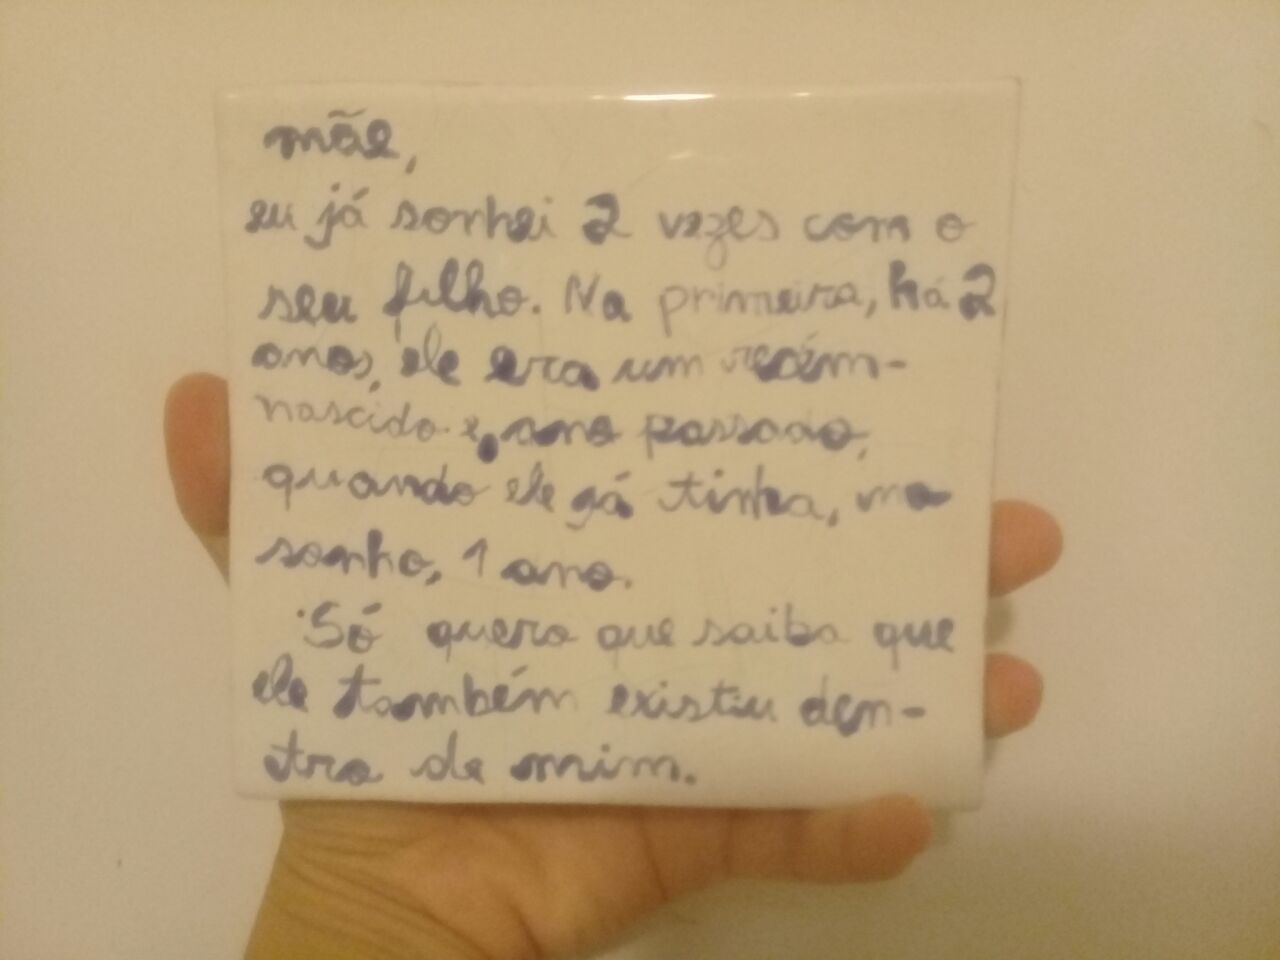 mãe,
eu já sonhei 2 vezes com o
seu filho. Na primeira, há 2
anos, ele era um recém-
nascido e, ano passado,
quando ele já tinha, no
sonho, 1 ano.
Só quero que saiba que
ele também existiu den-
tro de mim.